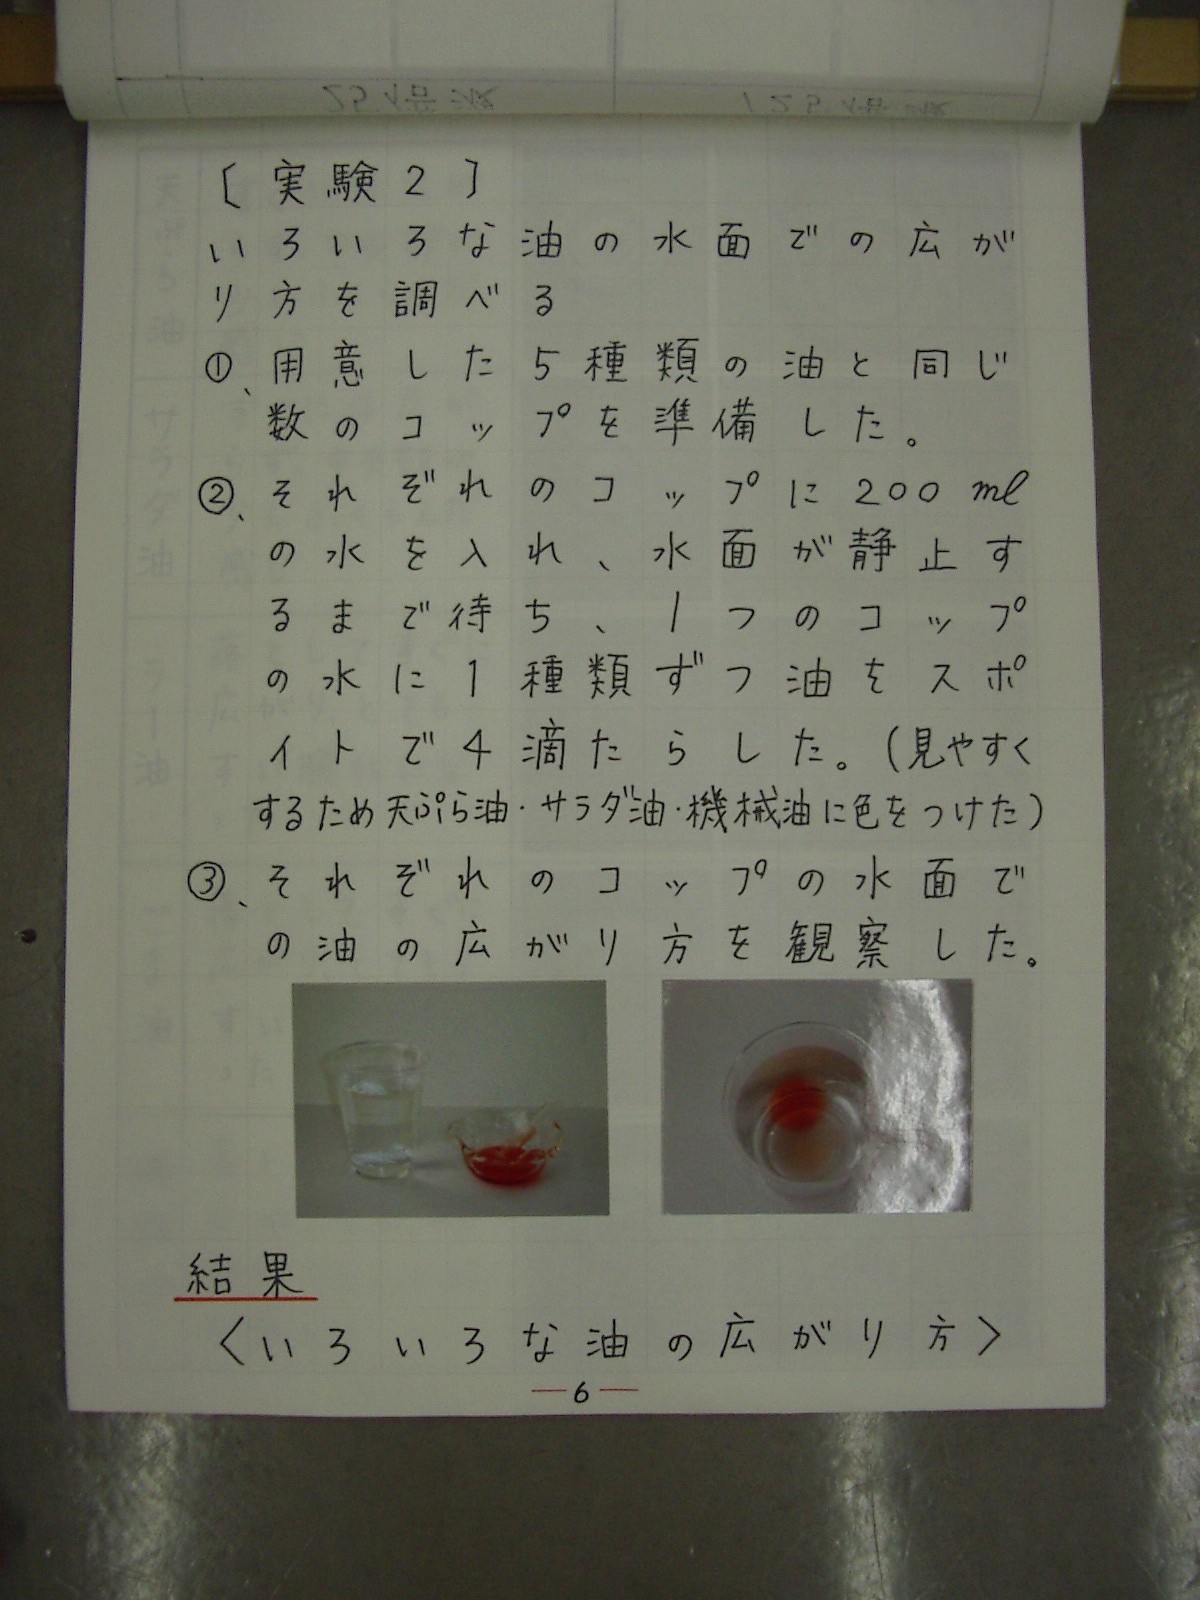 25倍液 125倍液
〔実験2〕
いろいろな油の水面での広が
り方を調べる
①、用意した5種類の油と同じ
数のコップを準備した。
②、それぞれのコップに200ml
の水を入れ、水面が静止す
るまで待ち、1つのコップ
の水に1種類ずつ油をスポ
イトで4滴たらした。(見やすく
するため天ぷら油・サラダ油・機械油に色をつけた)
③、それぞれのコップの水面で
の油の広がり方を観察した。
結果
〈いろいろな油の広がり方〉
—6—